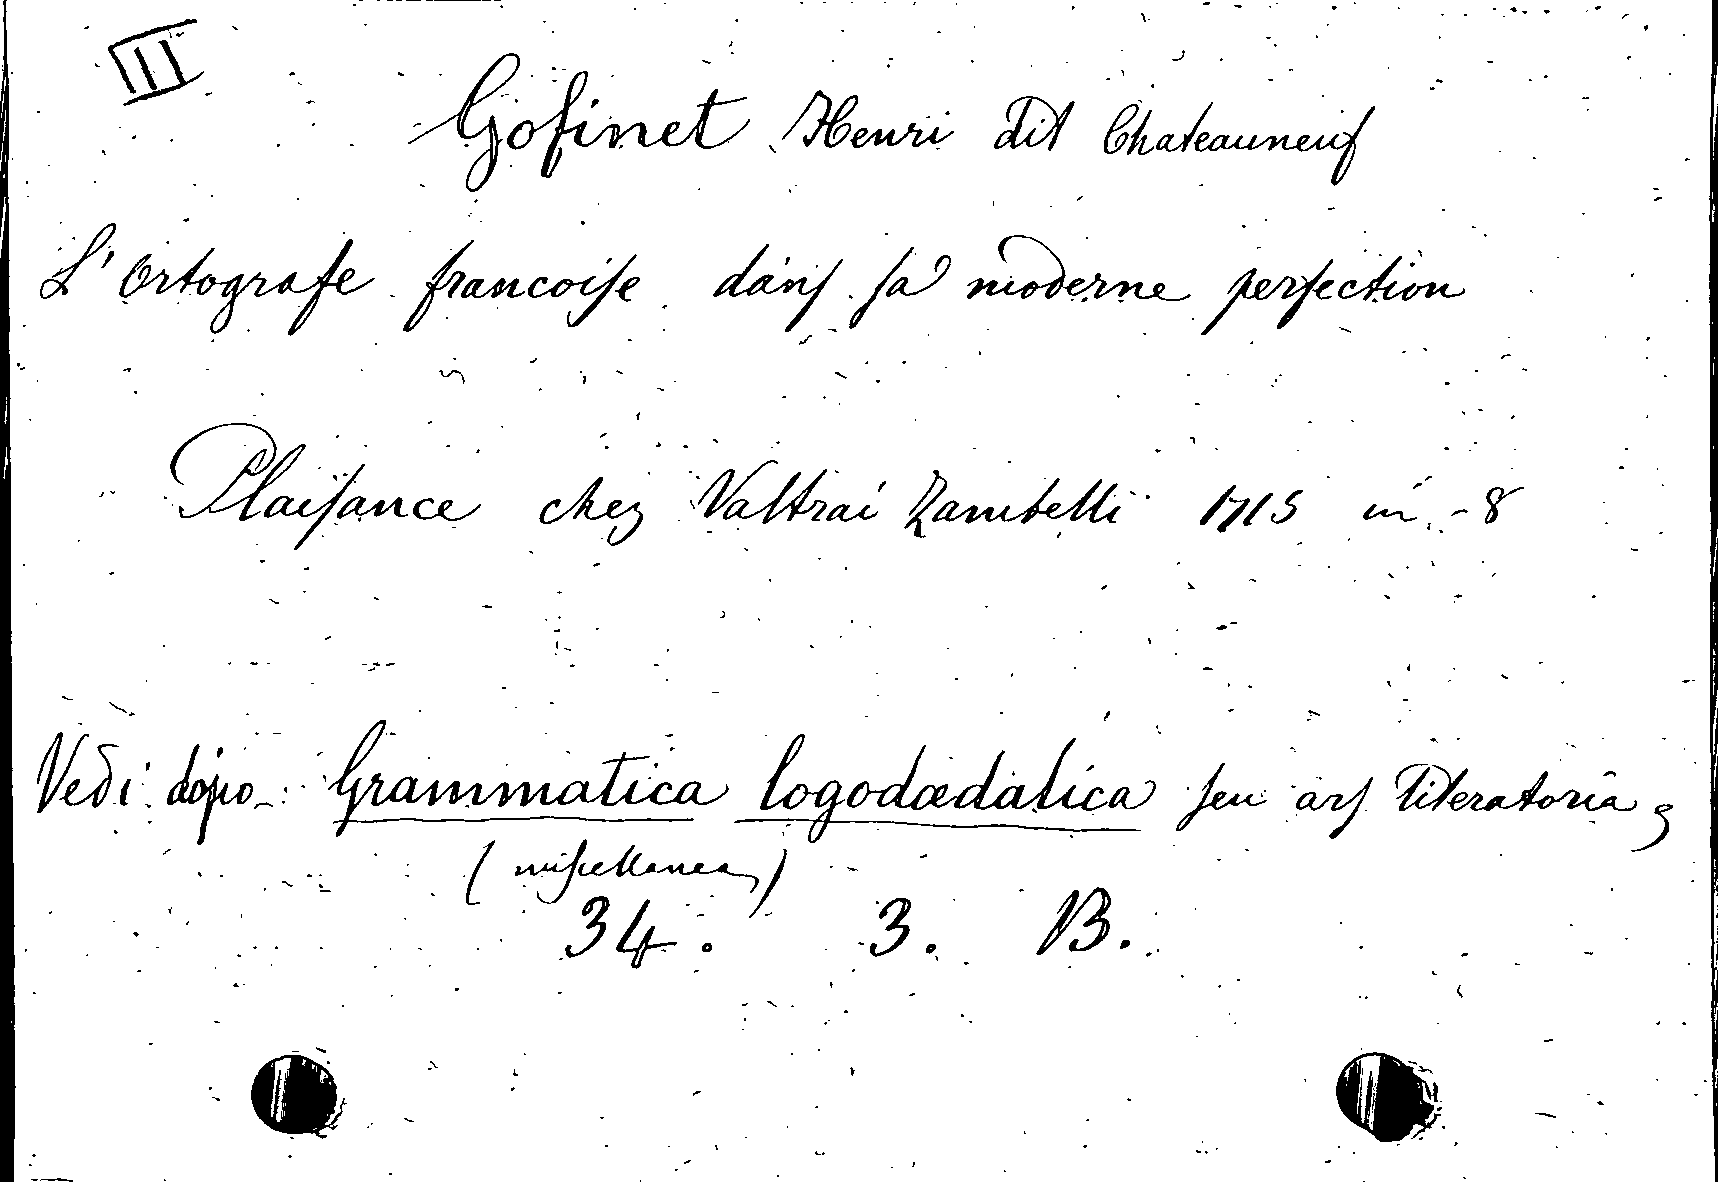 III
Gofinet Henri dit Chateauneuf
L'Ortografe francoiſe danſ ſa moderne perfection
Plaiſance chez Valtrai Zambelli 1715 in -8
Vedi dopo: Grammatica logodædalica ſeu arſ literatoria,
(miſcellanea)
34. 3. B.